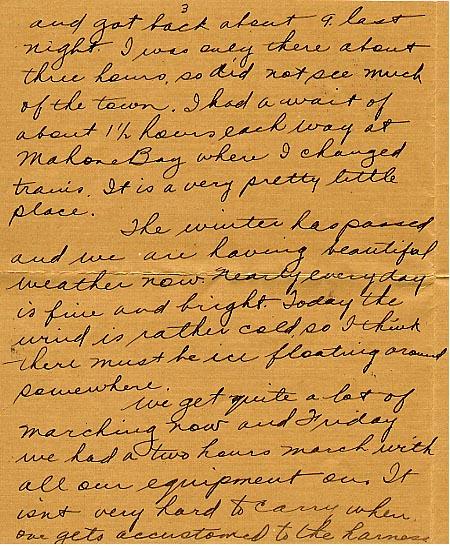 3
and got back about 9. last
night. I was only there about
three hours, so did not see much
of the town. I had a wait of
about 1½ hours each way at
Mahone Bay where I changed
trains. It is a very pretty little
place.
The winter has passed
and we are having beautiful
weather now. Nearly every day
is fine and bright. Today the
wind is rather cold so I think
there must be ice floating around
somewhere.
We get quite a lot of
marching now and Friday
we had a two hours march with
all our equipment on. It
isnt very hard to carry when
one gets accustomed to the harness